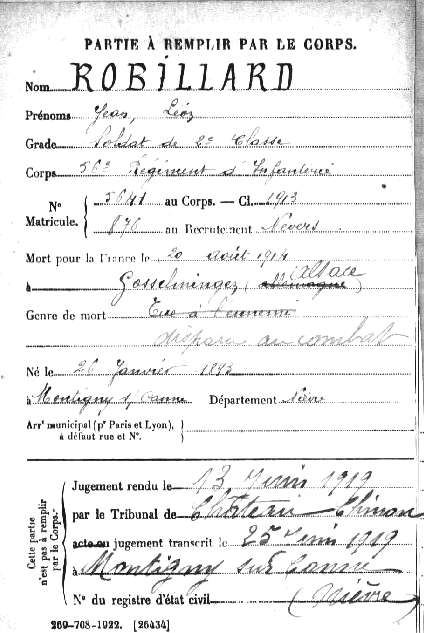 PARTIE À REMPLIR PAR LE CORPS.
Nom ROBILLARD
Prénoms Jean, Léon
Grade Soldat de 2e Classe
Corps 56e Régiment d'Infanterie
N° Matricule. { 5641 au Corps. — Cl. 1913
876 au Recrutement Nevers
Mort pour la France le 20 août 1914
à Gosselmingen (Allemagne) Alsace
Genre de mort Tué à l'ennemi
disparu au combat
Né le 26 Janvier 1893
à Montigny s/ Canne Département Nièvre
Arrt municipal (pr Paris et Lyon), à défaut rue et N°. }
Cette partie n'est pas à remplir par le Corps.
Jugement rendu le 13 Juin 1919
par le Tribunal de Château-Chinon
acte ou jugement transcrit le 25 Juin 1919
à Montigny sur Canne
N° du registre d'état civil (Nièvre)
269-708-1922. [26434]